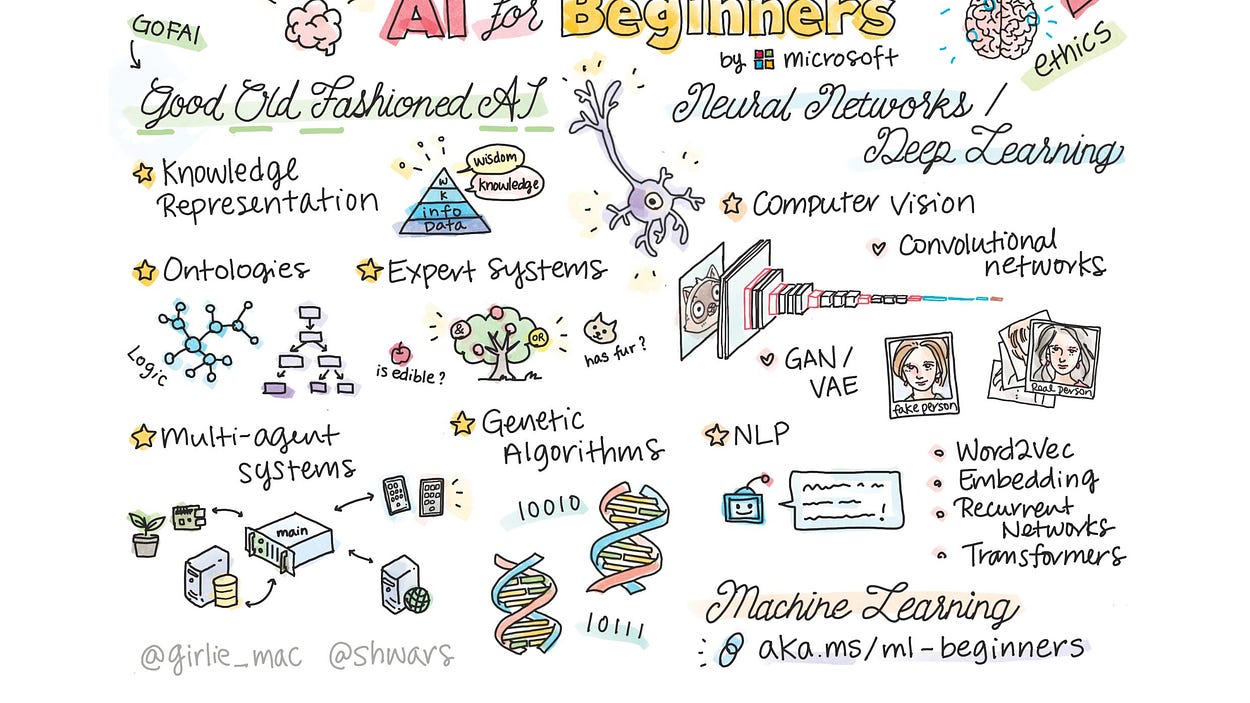 AI for Beginners
by microsoft
GOFAI
ethics
Good Old Fashioned AI
Knowledge
Representation
wisdom
knowledge
W
K
info
Data
Ontologies
Logic
Expert Systems
&
OR
is edible?
has fur?
Multi-agent
systems
main
Genetic
Algorithms
10010
10111
@girlie_mac @shwars
Neural Networks /
Deep Learning
Computer Vision
Convolutional
networks
GAN /
VAE
fake person
Real person
NLP
Word2Vec
Embedding
Recurrent
Networks
Transformers
Machine Learning
aka.ms/ml-beginners